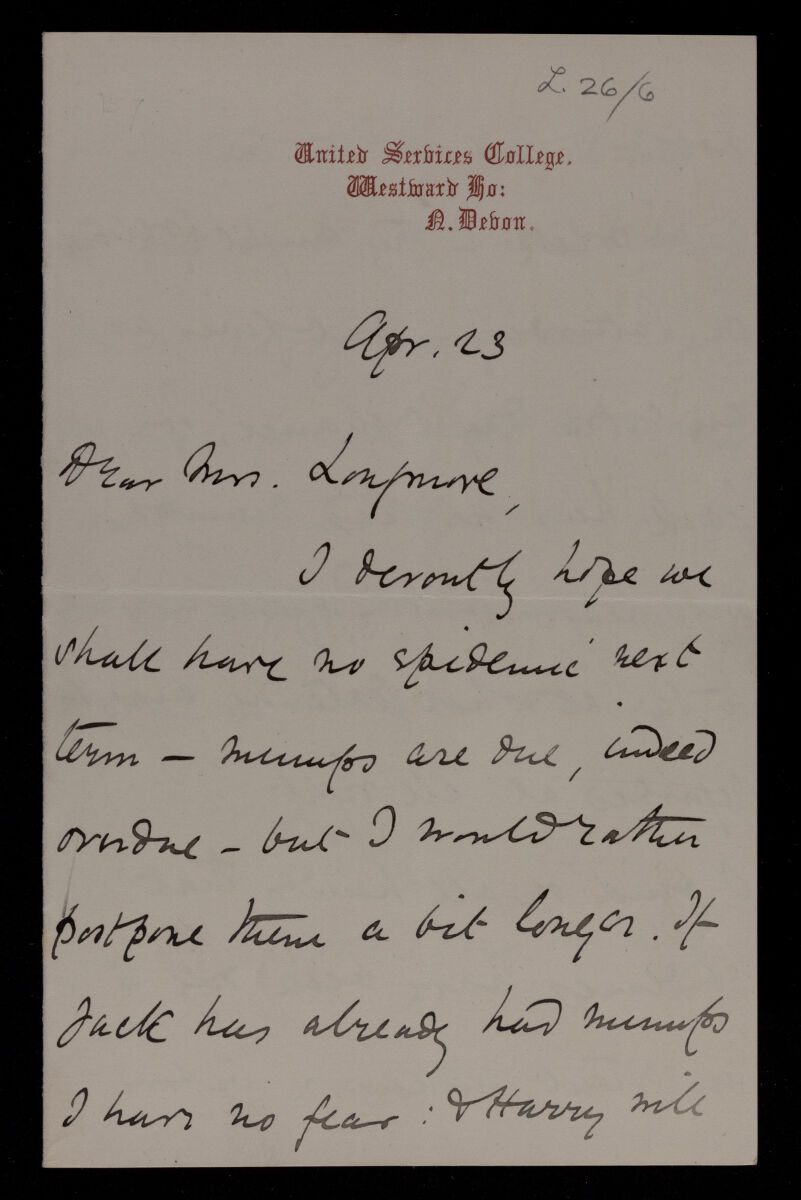 L. 26/6
United Services College.
Westward Ho:
N. Devon.
Apr. 23
Dear Mrs. Longmore,
I devoutly hope we
shall have no epidemic next
term – mumps are due, indeed
overdue – but I would rather
postpone them a bit longer. If
Jack has already had mumps
I have no fear: & Harry will